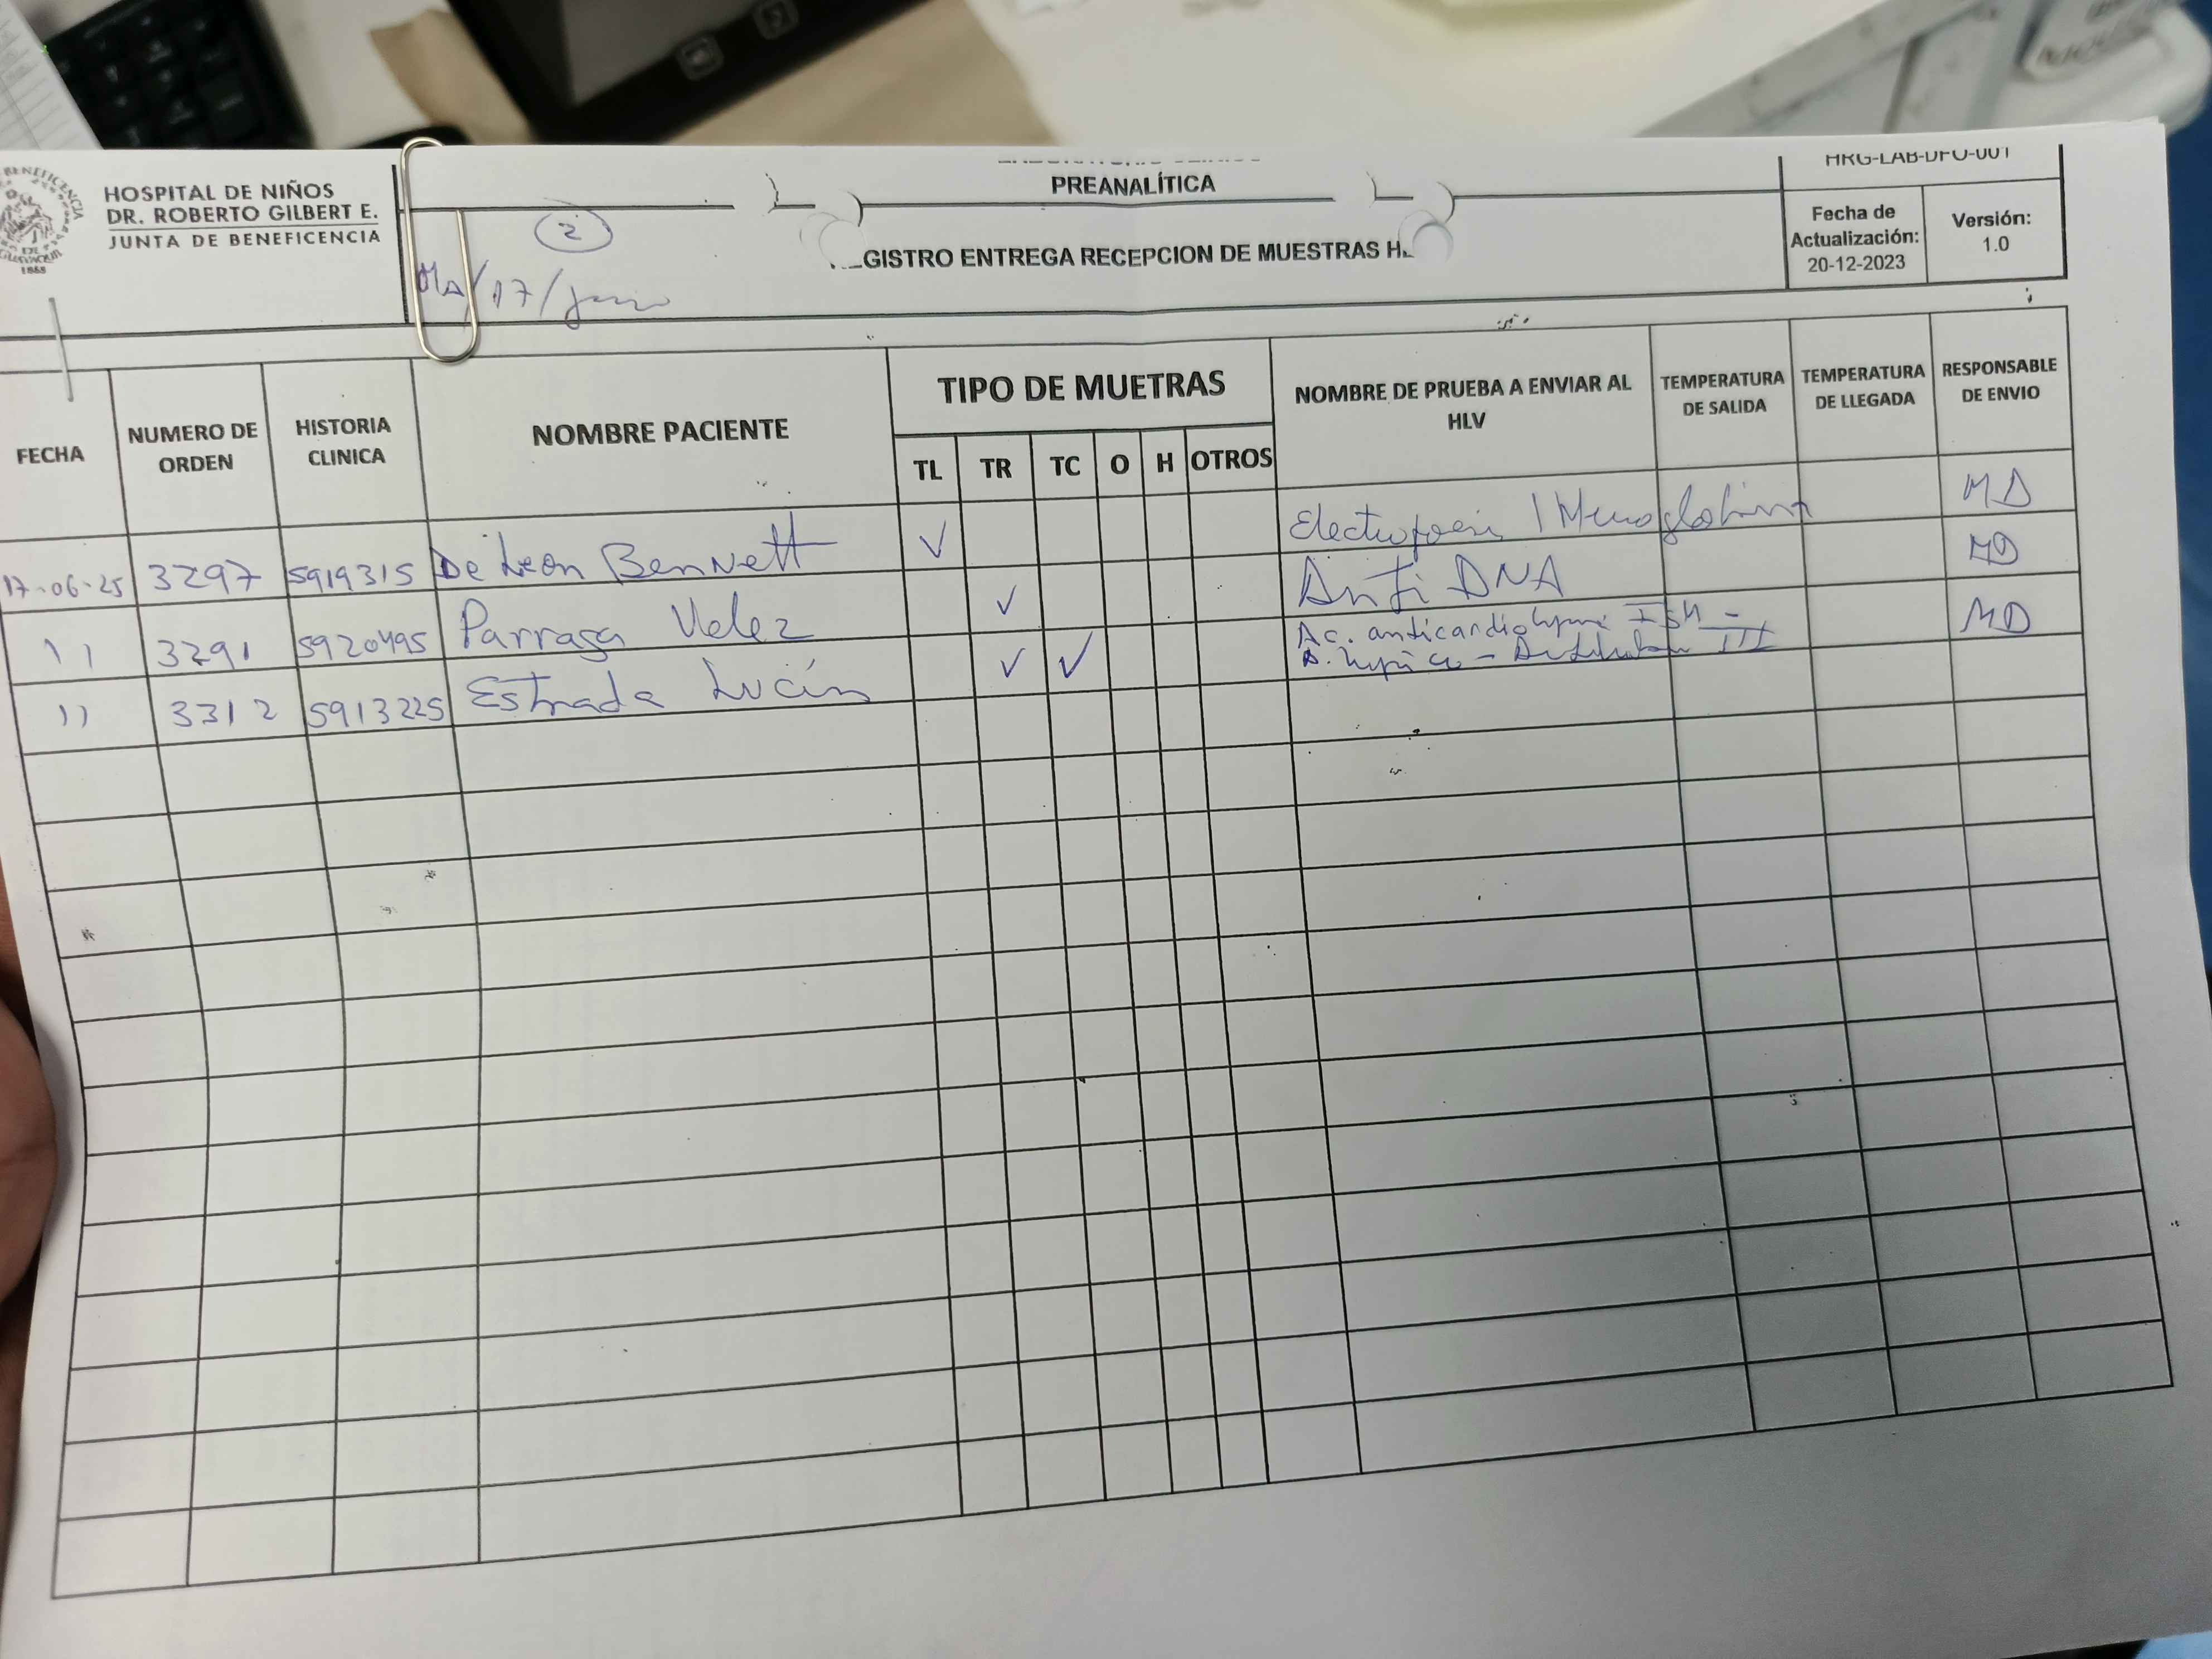 BENEFICENCIA
DE
GUAYAQUIL
1888
HOSPITAL DE NIÑOS
DR. ROBERTO GILBERT E.
JUNTA DE BENEFICENCIA
PREANALÍTICA
GISTRO ENTREGA RECEPCION DE MUESTRAS H
HRG-LAB-DFO-001
Fecha de
Actualización:
20-12-2023
Versión:
1.0
2
Ma/17/junio
FECHA
NUMERO DE
ORDEN
HISTORIA
CLINICA
NOMBRE PACIENTE
TIPO DE MUETRAS
TL TR TC O H OTROS
NOMBRE DE PRUEBA A ENVIAR AL
HLV
TEMPERATURA
DE SALIDA
TEMPERATURA
DE LLEGADA
RESPONSABLE
DE ENVIO
17-06-25 3297 5919315 De Leon Bennett ✓ MD
11 3291 5920495 Parraga Velez ✓ Anti DNA MD
11 3312 5913225 Estrada Lucín ✓ ✓ Ac. anticardiolipina IGM - MD
III